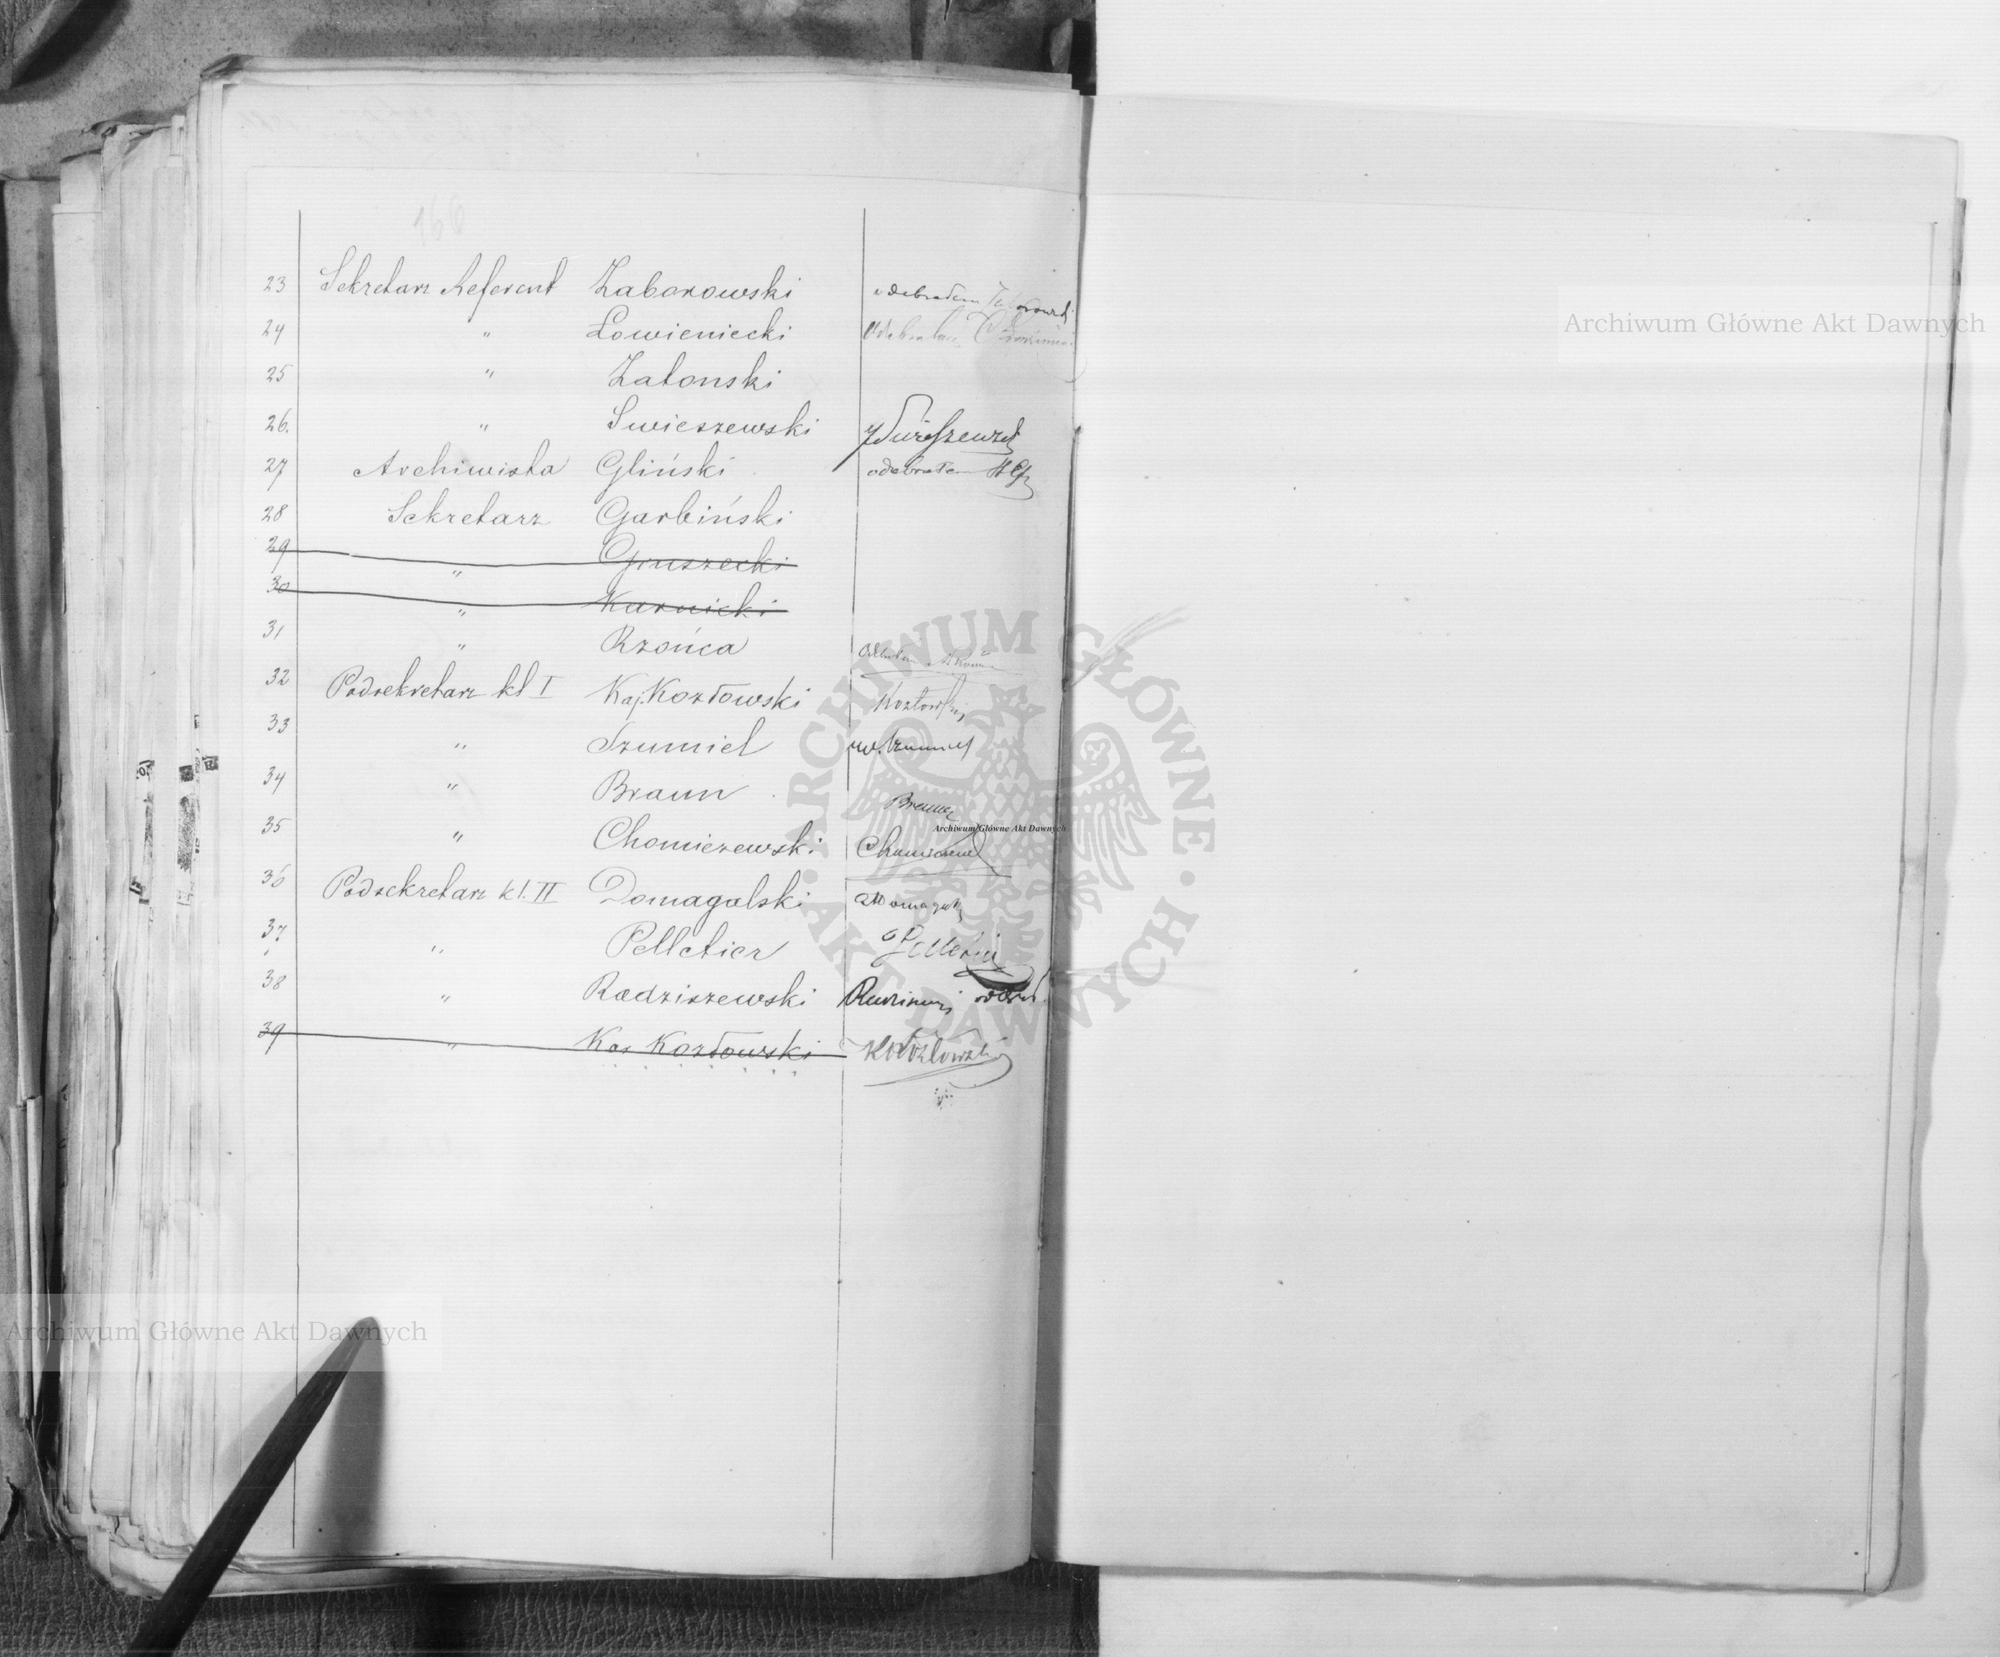 166
23 Sekretarz Referent Zaborowski odebrałem Zaborowski
24 " Łowieniecki Odebrałem
25 " Zatonski
26. " Swieszewski Swieszewski
27 Archiwista Gliński odebrałem HGl
28 Sekretarz Garbiński
29 " Gruszecki
30 " Karnicki
31 " Rzońca Odebrałem
32 Podsekretarz kl I Kaj. Kozłowski Kozłowski
33 " Szumiel W. Szumiel
34 " Braun Braun
35 " Chomiczewski
36 Podsekretarz kl. II Domagalski
37 " Pelletier Pelletier
38 " Radziszewski
39 " Kas Kozłowski Kozłowski
Archiwum Główne Akt Dawnych
Archiwum Główne Akt Dawnych
Archiwum Główne Akt Dawnych
ARCHIWUM GŁÓWNE · AKT DAWNYCH ·